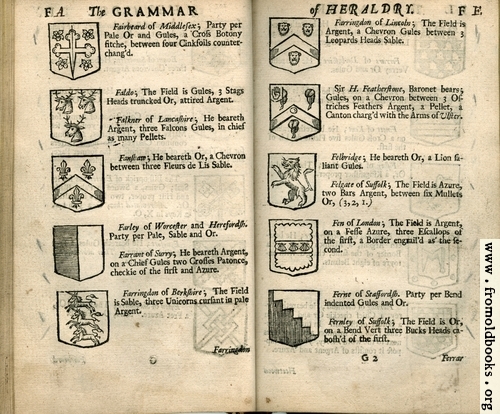 F A The GRAMMAR
Fairbeard of Middlesex; Party per
Pale Or and Gules, a Cross Botony
fitche, between four Cinkfoils counter-
chang'd.
Faldo; The Field is Gules, 3 Stags
Heads truncked Or, attired Argent.
Falkner of Lancashire; He beareth
Argent, three Falcons Gules, in chief
as many Pellets.
Fanshaw; He beareth Or, a Chevron
between three Fleurs de Lis Sable.
Farley of Worcester and Herefordsh.
Party per Pale, Sable and Or.
Farrant of Surry; He beareth Argent,
on a Chief Gules two Crosses Patonce,
checkie of the first and Azure.
Farringdon of Berkshire; The Field
is Sable, three Unicorns cursant in pale
Argent.
Farringdon
of HERALDRY. F E.
Farringdon of Lincoln; The Field is
Argent, a Chevron Gules between 3
Leopards Heads Sable.
Sir H. Featherstone, Baronet bears;
Gules, on a Chevron between 3 Os-
triches Feathers Argent, a Pellet, a
Canton charg'd with the Arms of Ulster.
Felbridge; He beareth Or, a Lion sa-
liant Gules.
Felgate of Suffolk; The Field is Azure,
two Bars Argent, between six Mullets
Or, (3, 2, 1.)
Fen of London; The Field is Argent,
on a Fesse Azure, three Escallops of
the first, a Border engrail'd as the se-
cond.
Ferne of Staffordsh. Party per Bend
indented Gules and Or.
Fernley of Suffolk; The Field is Or,
on a Bend Vert three Bucks Heads ca-
bosh'd of the first.
G 2 Ferrar
www.fromoldbooks.org